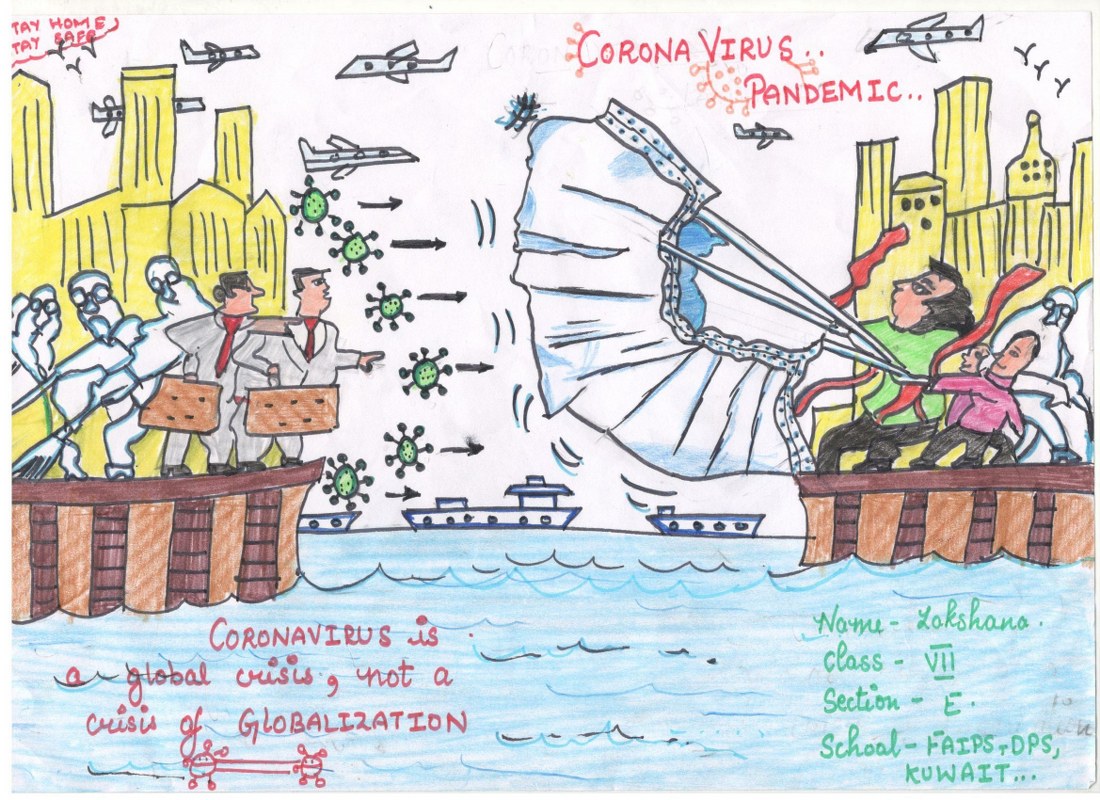 TAY HOME
TAY SAFE
CORONA VIRUS..
PANDEMIC..
CORONAVIRUS is
a global crisis, not a
crisis of GLOBALIZATION
Name - Lakshana.
Class - VII
Section - E.
School - FAIPS, DPS,
KUWAIT...